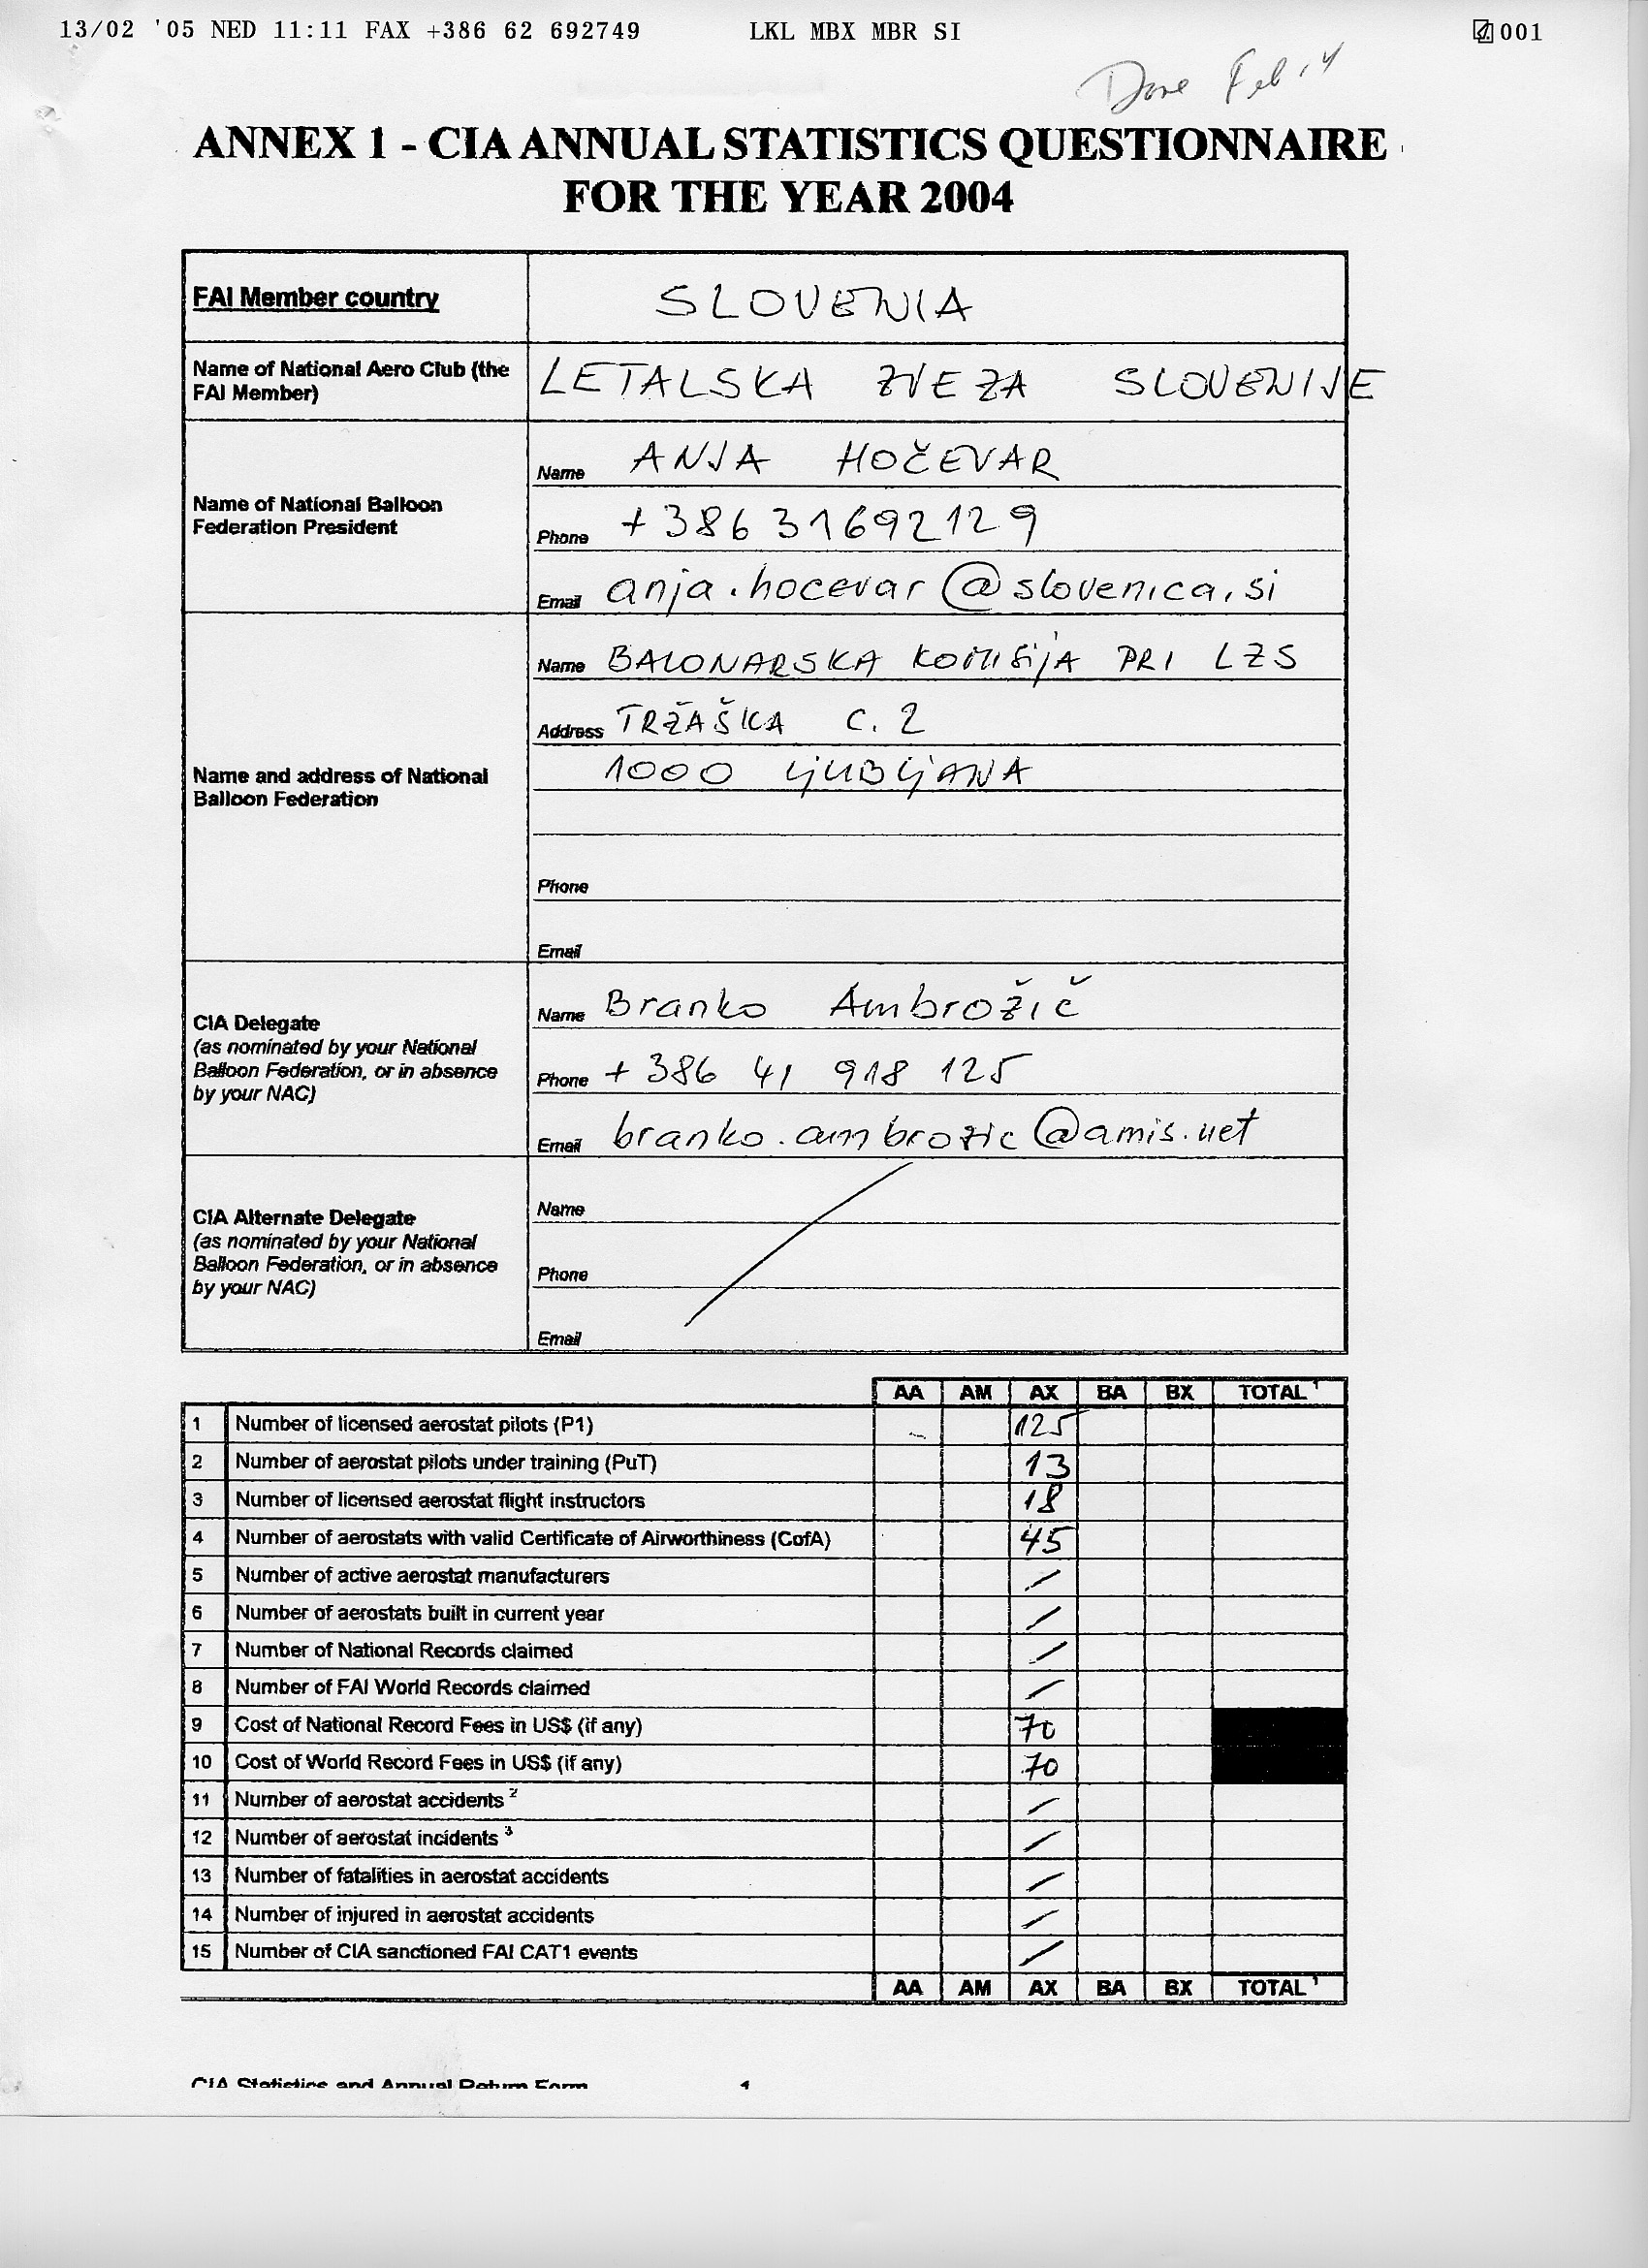 13/02 '05 NED 11:11 FAX +386 62 692749 LKL MBX MBR SI 001
Done Feb 14
ANNEX 1 - CIA ANNUAL STATISTICS QUESTIONNAIRE
FOR THE YEAR 2004
FAI Member country SLOVENIA
Name of National Aero Club (the
FAI Member)
LETALSKA ZVEZA SLOVENIJE
Name of National Balloon
Federation President
Name ANJA HOČEVAR
Phone +38631692129
Email anja.hocevar@slovenica.si
Name and address of National
Balloon Federation
Name BALONARSKA KOMISIJA PRI LZS
Address TRŽAŠKA C. 2
1000 LJUBLJANA
Phone
Email
CIA Delegate
(as nominated by your National
Balloon Federation, or in absence
by your NAC)
Name Branko Ambrožič
Phone +386 41 918 125
Email branko.ambrozic@amis.net
CIA Alternate Delegate
(as nominated by your National
Balloon Federation, or in absence
by your NAC)
Name
Phone
Email
AA AM AX BA BX TOTAL 1
1 Number of licensed aerostat pilots (P1) 125
2 Number of aerostat pilots under training (PuT) 13
3 Number of licensed aerostat flight instructors 18
4 Number of aerostats with valid Certificate of Airworthiness (CofA) 45
5 Number of active aerostat manufacturers /
6 Number of aerostats built in current year /
7 Number of National Records claimed /
8 Number of FAI World Records claimed /
9 Cost of National Record Fees in US$ (if any) 70
10 Cost of World Record Fees in US$ (if any) 70
11 Number of aerostat accidents 2 /
12 Number of aerostat incidents 3 /
13 Number of fatalities in aerostat accidents /
14 Number of injured in aerostat accidents /
15 Number of CIA sanctioned FAI CAT1 events /
AA AM AX BA BX TOTAL 1
CIA Statistics and Annual Return Form 1